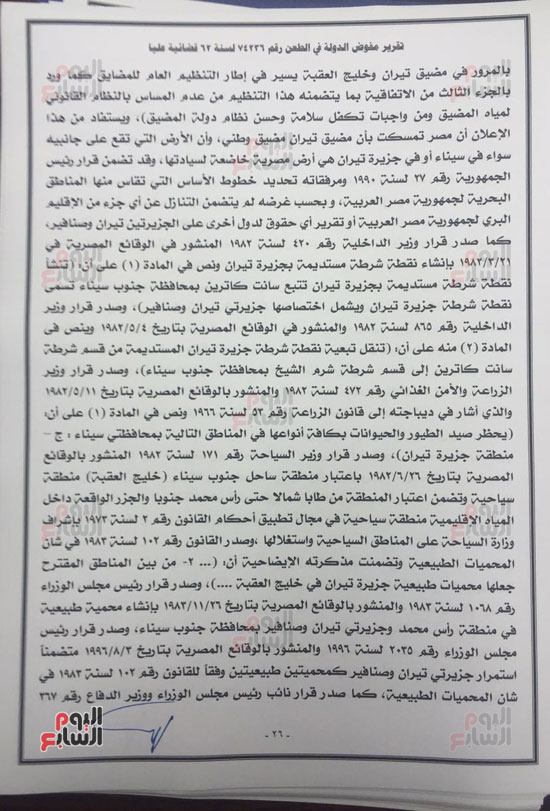 تقرير مفوض الدولة في الطعن رقم ٧٤٢٣٦ لسنة ٦٢ قضائية عليا
بالمرور في مضيق تيران وخليج العقبة يسير في إطار التنظيم العام للمضايق كما ورد
بالجزء الثالث من الاتفاقية بما يتضمنه هذا التنظيم من عدم المساس بالنظام القانوني
لمياه المضيق ومن واجبات تكفل سلامة وحسن نظام دولة المضيق)، ويستفاد من هذا
الإعلان أن مصر تمسكت بأن مضيق تيران مضيق وطني، وأن الأرض التي تقع على جانبيه
سواء في سيناء أو في جزيرة تيران هي أرض مصرية خاضعة لسيادتها، وقد تضمن قرار رئيس
الجمهورية رقم ٢٧ لسنة ١٩٩٠ ومرفقاته تحديد خطوط الأساس التي تقاس منها المناطق
البحرية لجمهورية مصر العربية، و بحسب غرضه لم يتضمن التنازل عن أي جزء من الإقليم
البري لجمهورية مصر العربية أو تقرير أي حقوق لدول أخرى على الجزيرتين تيران وصنافير،
كما صدر قرار وزير الداخلية رقم ٤٢٠ لسنة ١٩٨٢ المنشور في الوقائع المصرية في
١٩٨٢/٣/٢١ بإنشاء نقطة شرطة مستديمة بجزيرة تيران ونص في المادة (١) على أن: (تنشأ
نقطة شرطة مستديمة بجزيرة تيران تتبع سانت كاترين بمحافظة جنوب سيناء تسمى
نقطة شرطة جزيرة تيران ويشمل اختصاصها جزيرتي تيران وصنافير)، وصدر قرار وزير
الداخلية رقم ٨٦٥ لسنة ١٩٨٢ والمنشور في الوقائع المصرية بتاريخ ١٩٨٢/٥/٤ وينص فى
المادة (٢) منه على أن: (تنقل تبعية نقطة شرطة جزيرة تيران المستديمة من قسم شرطة
سانت كاترين إلى قسم شرطة شرم الشيخ بمحافظة جنوب سيناء)، وصدر قرار وزير
الزراعة والأمن الغذائي رقم ٤٧٢ لسنة ١٩٨٢ والمنشور بالوقائع المصرية بتاريخ ١٩٨٢/٥/١١
والذي أشار في ديباجته إلى قانون الزراعة رقم ٥٣ لسنة ١٩٦٦ ونص في المادة (١) على أن:
(يحظر صيد الطيور والحيوانات بكافة أنواعها في المناطق التالية بمحافظتي سيناء : ج –
منطقة جزيرة تيران)، وصدر قرار وزير السياحة رقم ١٧١ لسنة ١٩٨٢ المنشور بالوقائع
المصرية بتاريخ ١٩٨٢/٦/٢٦ باعتبار منطقة ساحل جنوب سيناء (خليج العقبة) منطقة
سياحية وتضمن اعتبار المنطقة من طابا شمالا حتى رأس محمد جنوبا والجزر الواقعة داخل
المياه الإقليمية منطقة سياحية في مجال تطبيق أحكام القانون رقم ٢ لسنة ١٩٧٣ بإشراف
وزارة السياحة على المناطق السياحية واستغلالها ،وصدر القانون رقم ١٠٢ لسنة ١٩٨٣ في شأن
المحميات الطبيعية وتضمنت مذكرته الإيضاحية أن: (... ٢- من بين المناطق المقترح
جعلها محميات طبيعية جزيرة تيران في خليج العقبة ....)، وصدر قرار رئيس مجلس الوزراء
رقم ١٠٦٨ لسنة ١٩٨٣ والمنشور بالوقائع المصرية بتاريخ ١٩٨٣/١١/٢٦ بإنشاء محمية طبيعية
في منطقة رأس محمد وجزيرتي تيران وصنافير بمحافظة جنوب سيناء، وصدر قرار رئيس
مجلس الوزراء رقم ٢٠٣٥ لسنة ١٩٩٦ والمنشور بالوقائع المصرية بتاريخ ١٩٩٦/٨/٣ متضمناً
استمرار جزيرتي تيران وصنافير كمحميتين طبيعيتين وفقاً للقانون رقم ١٠٢ لسنة ١٩٨٣ في
شأن المحميات الطبيعية، كما صدر قرار نائب رئيس مجلس الوزراء ووزير الدفاع رقم ٣٦٧
اليوم السابع
- ٢٦ -